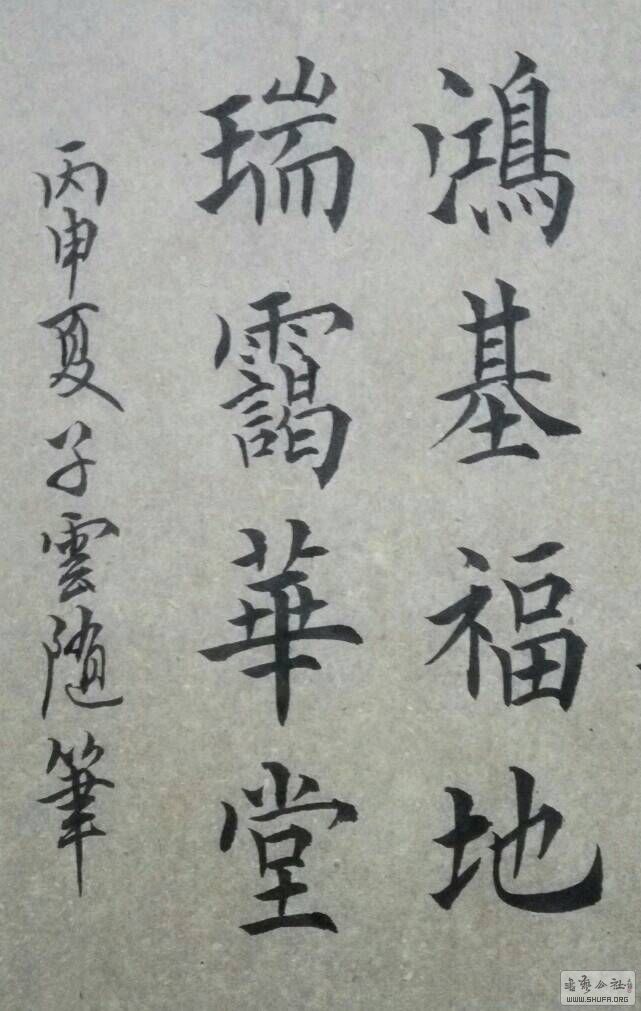 鴻基福地
瑞靄華堂
丙申夏子雲随筆
書藝公社
WWW.SHUFA.ORG